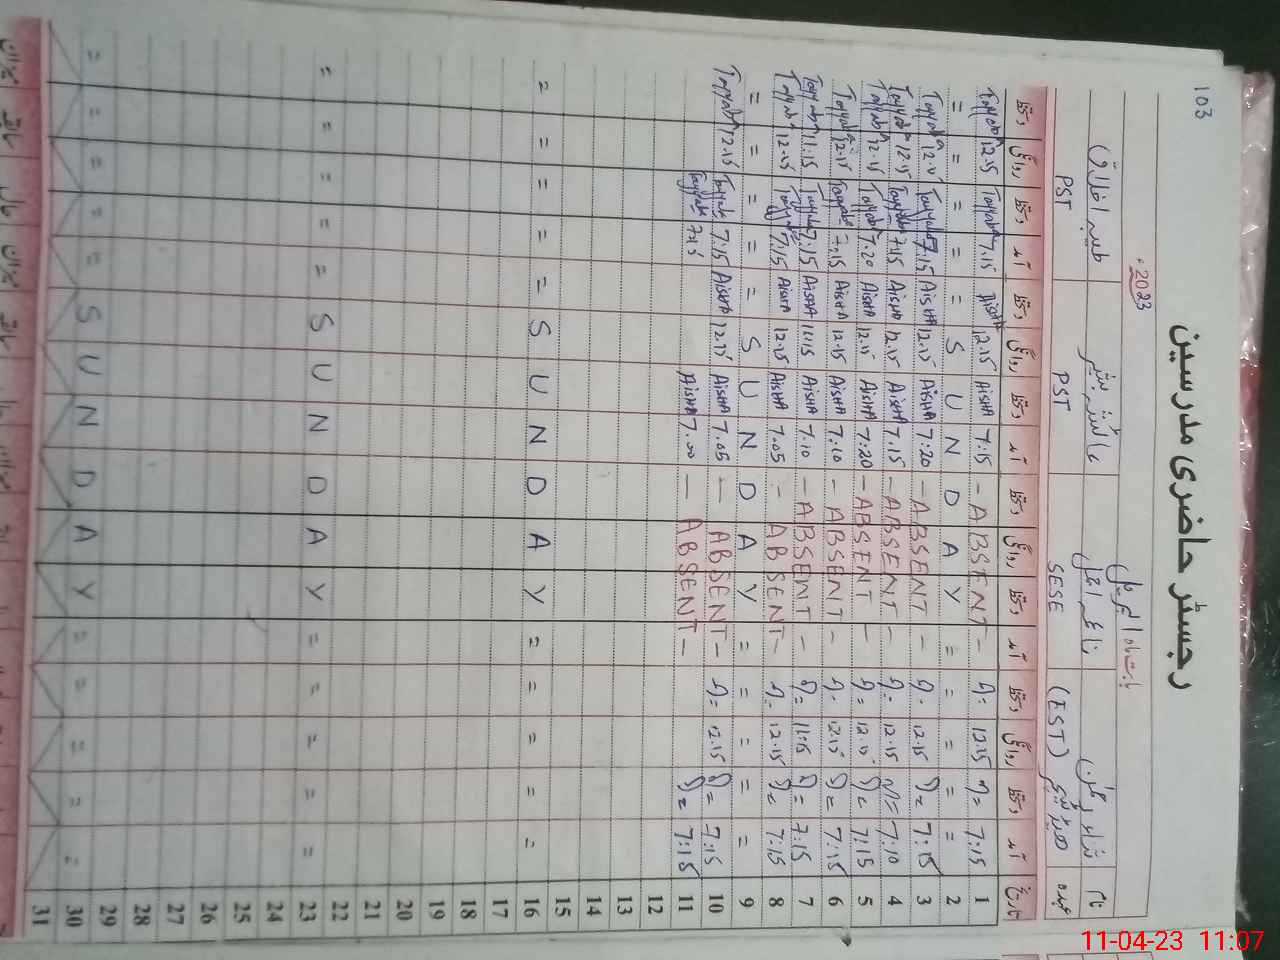 103
رجسٹر حاضری مدرسین
بابت ماہ اپریل 2023
نام ثناء رحمٰن ناعمہ افضل عائشہ بشیر طیبہ اخلاق
عہدہ ہیڈ ٹیچر (EST) SESE PST PST
تاریخ آمد دستخط روانگی دستخط آمد دستخط روانگی دستخط آمد دستخط روانگی دستخط آمد دستخط روانگی دستخط
1 7:15 12.15 - ABSENT - 7:15 AISHA 12.15 AISHA 7.15 Tayyab 12.15 Tayyab
2 = = = = = S U N D A Y = = = =
3 7:15 12.15 - ABSENT - 7:20 AISHA 12.15 AISHA 7.15 Tayyab 12.15 Tayyab
4 7:10 12.15 - ABSENT - 7.15 AISHA 12.15 AISHA 7.15 Tayyab 12.15 Tayyab
5 7:15 12.15 - ABSENT - 7:20 AISHA 12.15 AISHA 7.20 Tayyab 12.15 Tayyab
6 7:15 12.15 - ABSENT - 7:10 AISHA 12.15 AISHA 7.15 Tayyab 12.15 Tayyab
7 7:15 11:15 - ABSENT - 7.10 AISHA 11:15 AISHA 7:15 Tayyab 11:15 Tayyab
8 7:15 12.15 - ABSENT - 7.05 AISHA 12.15 AISHA 7:15 Tayyab 12.15 Tayyab
9 = = = = S U N D A Y = = = = =
10 7:15 12.15 - ABSENT - 7.05 AISHA 12.15 AISHA 7:15 Tayyab 12.15 Tayyab
11 7:15 - ABSENT - 7.00 AISHA 7:15 Tayyab
12
13
14
15
16 = = = = S U N D A Y = = = = =
17
18
19
20
21
22
23 = = = = = S U N D A Y = = = = =
24
25
26
27
28
29
30 = = = = = S U N D A Y = = = = =
31
11-04-23 11:07